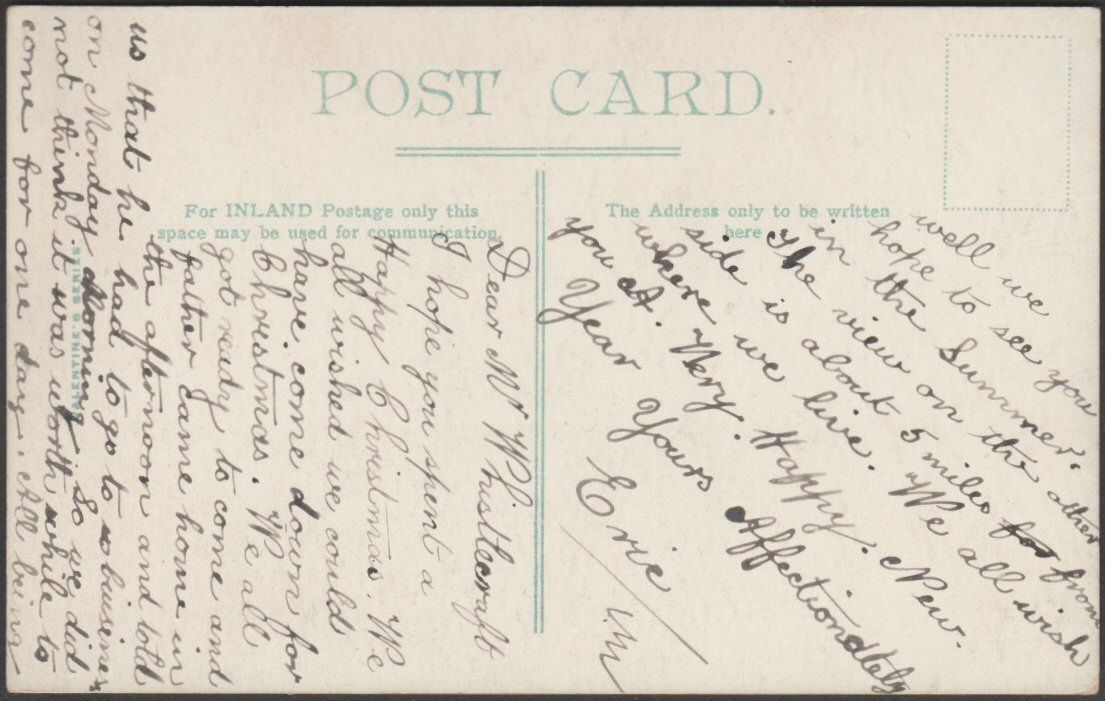 POST CARD.
For INLAND Postage only this
space may be used for communication.
The Address only to be written
here
Dear Mr Whustlecraft
I hope you spent a
Happy Christmas. We
all wished we could
have come down for
Christmas. We all
got ready to come and
father came home in
the afternoon and told
us that he had to go to business
on Monday Morning. So we did
not think it was worth while to
come for one day. All being
well we
hope to see you
in the Summer.
The view on the other
side is about 5 miles from
where we live. We all wish
you A. Very. Happy. New.
Year
Yours Affectionately
Eric